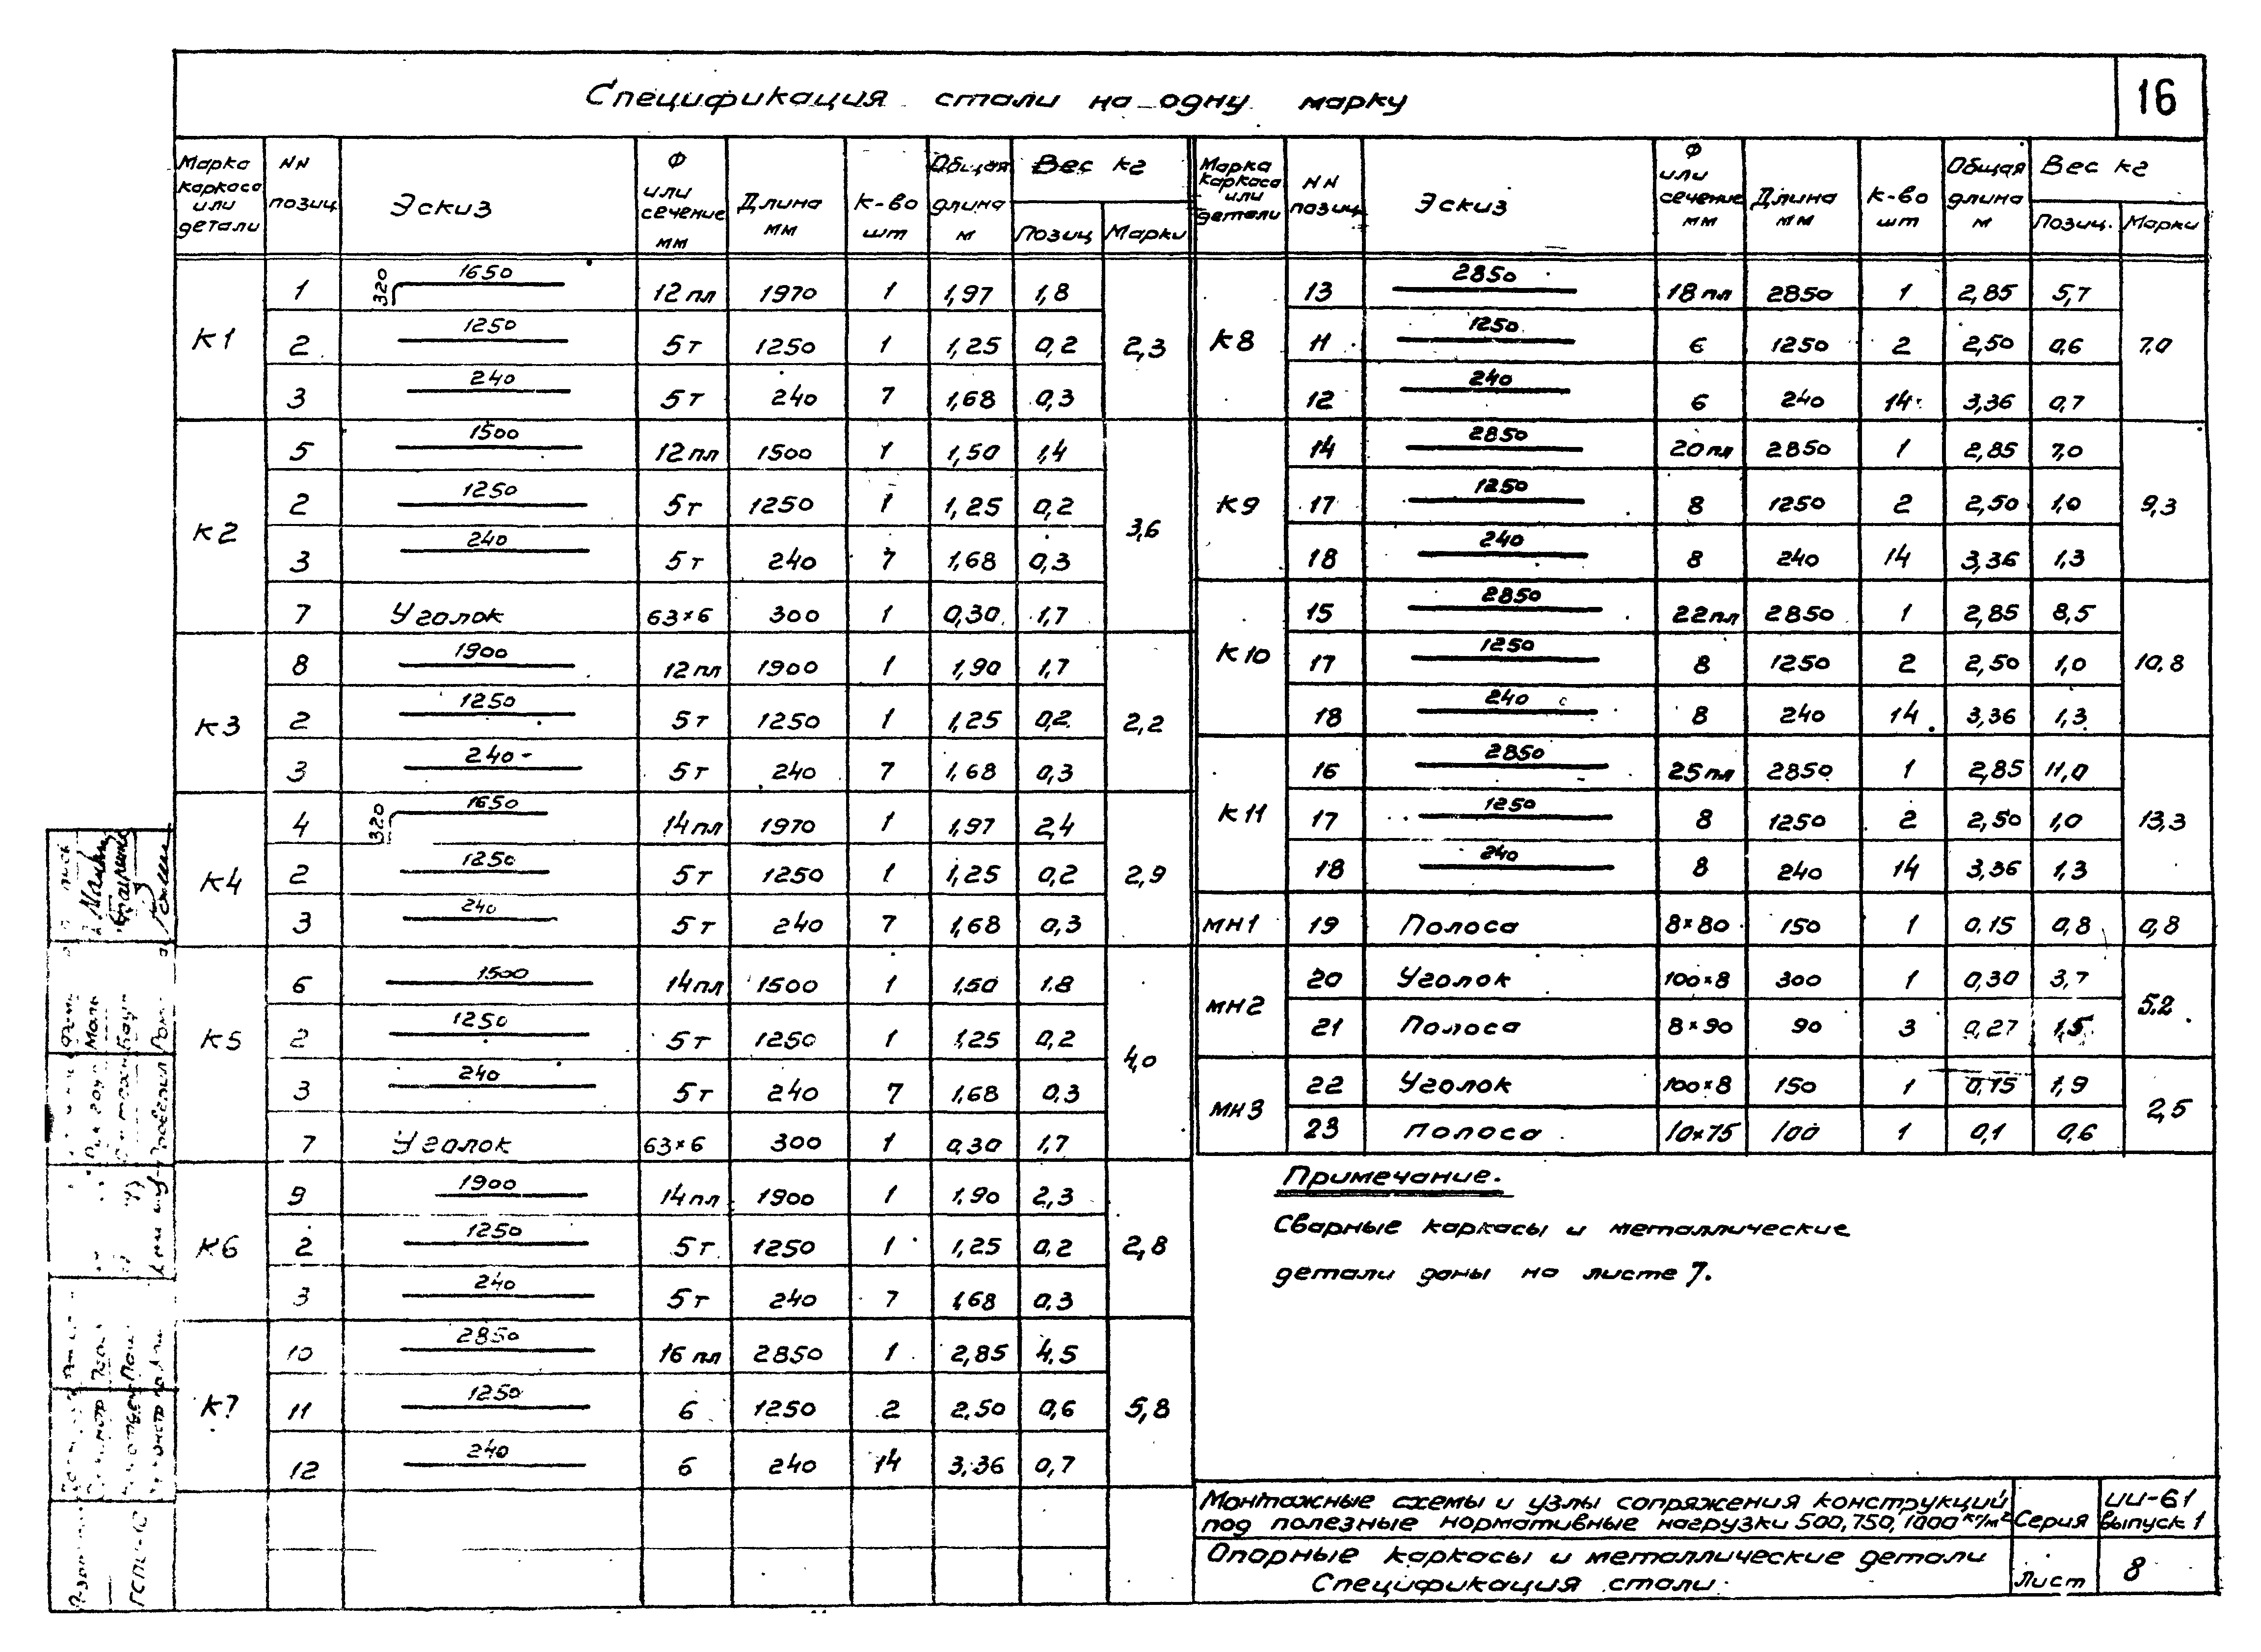 Спецификация стали на одну марку
16
Марка каркаса или детали NN позиц Эскиз Ф или сечение мм Длина мм К-во шт Общая длина м Вес кг Позиц Марки
К1 1 320 1650 12пл 1970 1 1,97 1,8 2,3
2 1250 5т 1250 1 1,25 0,2
3 240 5т 240 7 1,68 0,3
К2 5 1500 12пл 1500 1 1,50 1,4 3,6
2 1250 5т 1250 1 1,25 0,2
3 240 5т 240 7 1,68 0,3
7 Уголок 63×6 300 1 0,30 1,7
К3 8 1900 12пл 1900 1 1,90 1,7 2,2
2 1250 5т 1250 1 1,25 0,2
3 240 5т 240 7 1,68 0,3
К4 4 320 1650 14пл 1970 1 1,97 2,4 2,9
2 1250 5т 1250 1 1,25 0,2
3 240 5т 240 7 1,68 0,3
К5 6 1500 14пл 1500 1 1,50 1.8 4,0
2 1250 5т 1250 1 1,25 0,2
3 240 5т 240 7 1,68 0,3
7 Уголок 63×6 300 1 0,30 1,7
К6 9 1900 14пл 1900 1 1.90 2,3 2,8
2 1250 5т 1250 1 1,25 0,2
3 240 5т 240 7 1,68 0,3
К7 10 2850 16пл 2850 1 2,85 4.5 5,8
11 1250 6 1250 2 2.50 0,6
12 240 6 240 14 3,36 0,7
Марка каркаса или детали NN позиц Эскиз Ф или сечение мм Длина мм К-во шт Общая длина м Вес кг Позиц. Марки
К8 13 2850 18пл 2850 1 2,85 5,7 7,0
11 1250 6 1250 2 2,50 0,6
12 240 6 240 14 3,36 0,7
К9 14 2850 20пл 2850 1 2,85 7,0 9,3
17 1250 8 1250 2 2,50 1,0
18 240 8 240 14 3,36 1,3
К10 15 2850 22пл 2850 1 2,85 8,5 10,8
17 1250 8 1250 2 2,50 1,0
18 240 8 240 14 3,36 1,3
К11 16 2850 25пл 2850 1 2,85 11,0 13,3
17 1250 8 1250 2 2,50 1,0
18 240 8 240 14 3,36 1,3
МН1 19 Полоса 8×80 150 1 0.15 0,8 0,8
МН2 20 Уголок 100×8 300 1 0,30 3,7 5.2
21 Полоса 8×90 90 3 0,27 1,5
МН3 22 Уголок 100×8 150 1 0,15 1,9 2,5
23 Полоса 10×75 100 1 0,1 0,6
Примечание.
Сварные каркасы и металлические
детали даны на листе 7.
Монтажные схемы и узлы сопряжения конструкций
под полезные нормативные нагрузки 500, 750, 1000 кг/м²
Серия
ИИ-61
выпуск 1
Опорные каркасы и металлические детали
Спецификация стали.
Лист
8